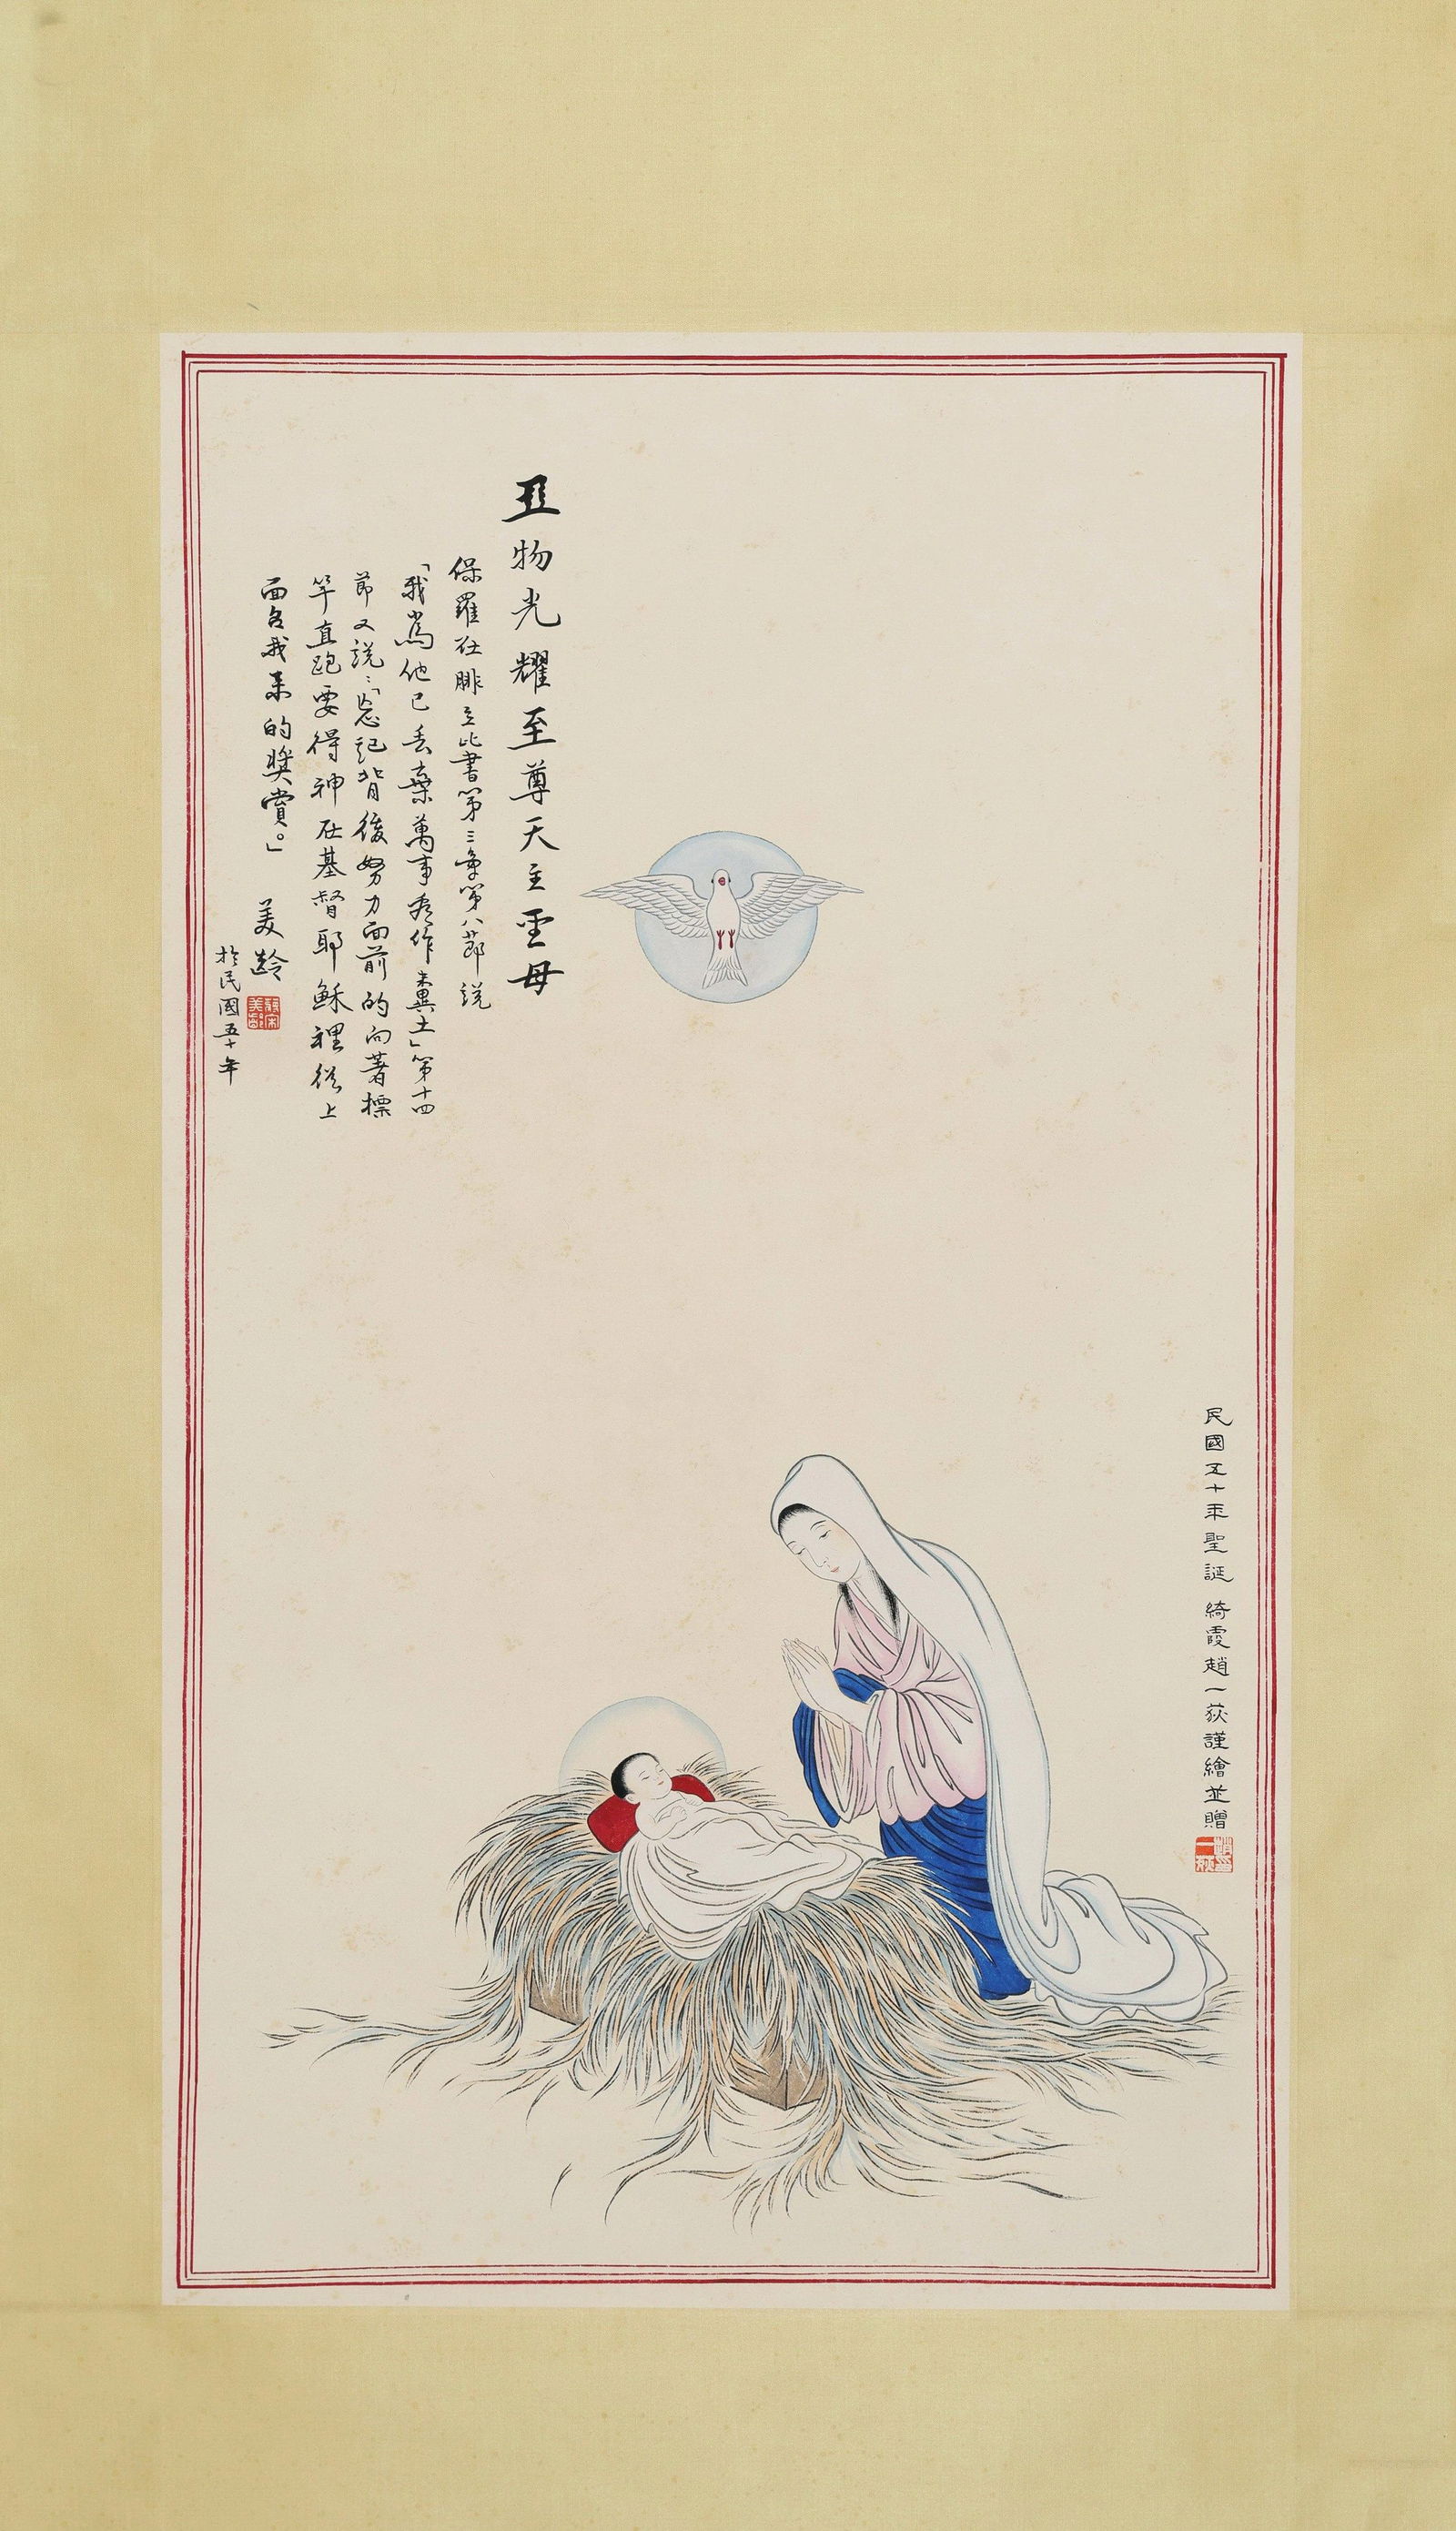 物光耀至尊天主聖母
保羅在腓立比書第三章第八節說
「我為他已丟棄萬事看作糞土」第十四
節又說：「忘記背後努力面前的向著標
竿直跑要得神在基督耶穌裡從上
面召我來的獎賞。」 美齡
於民國五十年
蔣宋美齡
民國五十年聖誕 綺霞趙一荻謹繪並贈